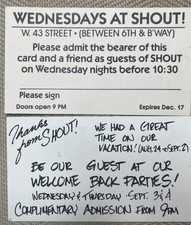 WEDNESDAYS AT SHOUT!
W. 43 STREET • (BETWEEN 6TH & B'WAY)
Please admit the bearer of this
card and a friend as guests of SHOUT
on Wednesday nights before 10:30
Please sign
Doors open 9 PM Expires Dec. 17
Thanks from SHOUT!
WE HAD A GREAT
TIME ON OUR
VACATION! (AUG. 24 → SEPT. 2)
BE OUR GUEST AT OUR
WELCOME BACK PARTIES!
WEDNESDAY & THURSDAY SEPT. 3 & 4
COMPLIMENTARY ADMISSION FROM 9PM